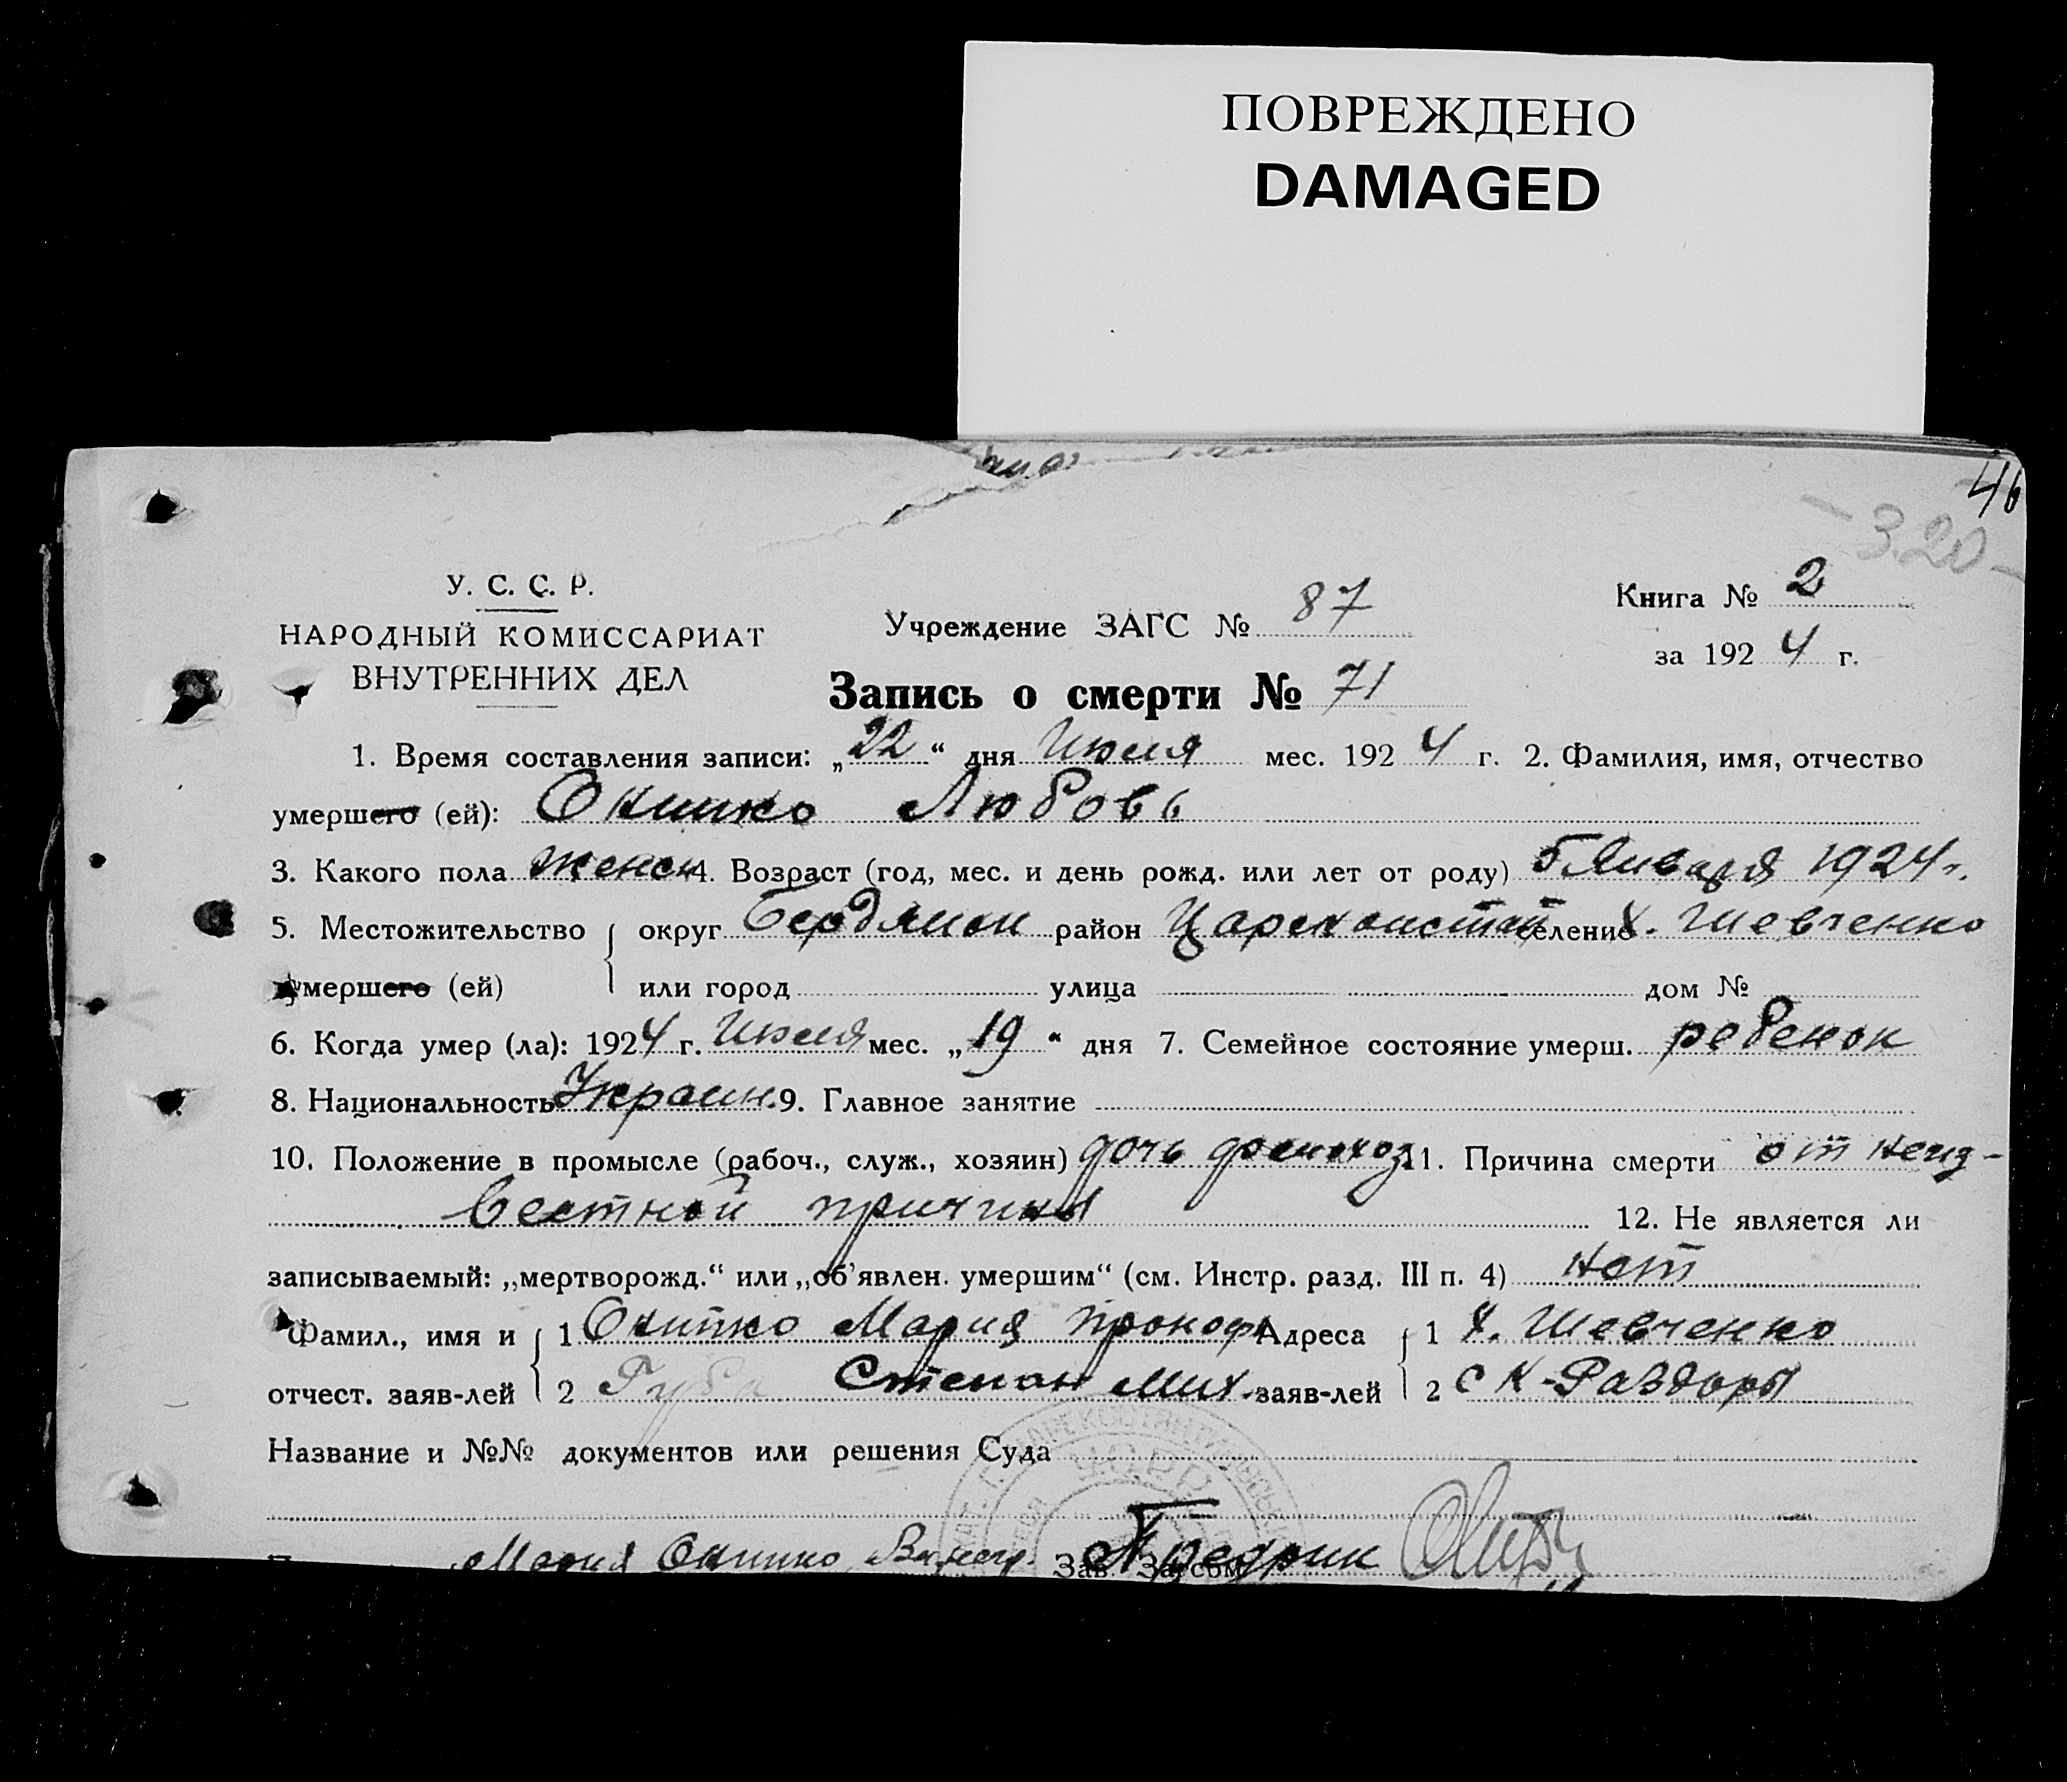 ПОВРЕЖДЕНО
DAMAGED
46
-320-
У. С. С. Р.
НАРОДНЫЙ КОМИССАРИАТ
ВНУТРЕННИХ ДЕЛ
Учреждение ЗАГС № 87
Книга № 2
за 1924 г.
Запись о смерти № 71
1. Время составления записи: „22“ дня Июля мес. 1924 г. 2. Фамилия, имя, отчество
умершего (ей): Онипко Любовь
3. Какого пола женск 4. Возраст (год, мес. и день рожд. или лет от роду) 5 Января 1924 г.
5. Местожительство округ Бердянск район Царекопстат селение х. Шевченко
умершего (ей) или город улица дом №
6. Когда умер (ла): 1924 г. Июля мес. „19“ дня 7. Семейное состояние умерш. ребенок
8. Национальность Украин. 9. Главное занятие
10. Положение в промысле (рабоч., служ., хозяин) дочь 11. Причина смерти от неиз-
вестной причины 12. Не является ли
записываемый: „мертворожд.“ или „об'явлен. умершим“ (см. Инстр. разд. III п. 4) нет
Фамил., имя и 1 Онипко Мария Прокоф Адреса 1 х. Шевченко
отчест. заяв-лей 2 Губа Степан Мих. заяв-лей 2 с К-Раздоры
Название и №№ документов или решения Суда
Мария Онипко Зав. Загсом